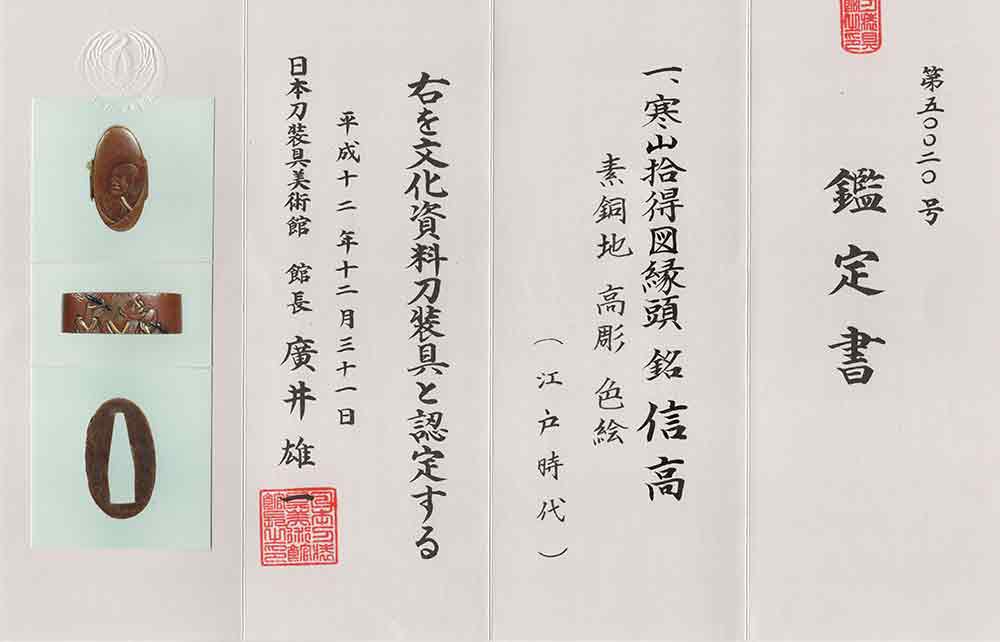 第五〇〇二〇号
鑑定書
一、寒山拾得図縁頭 銘 信高
素銅地 高彫 色絵
(江戸時代)
右を文化資料刀装具と認定する
平成十二年十二月三十一日
日本刀装具美術館 館長 廣井雄一